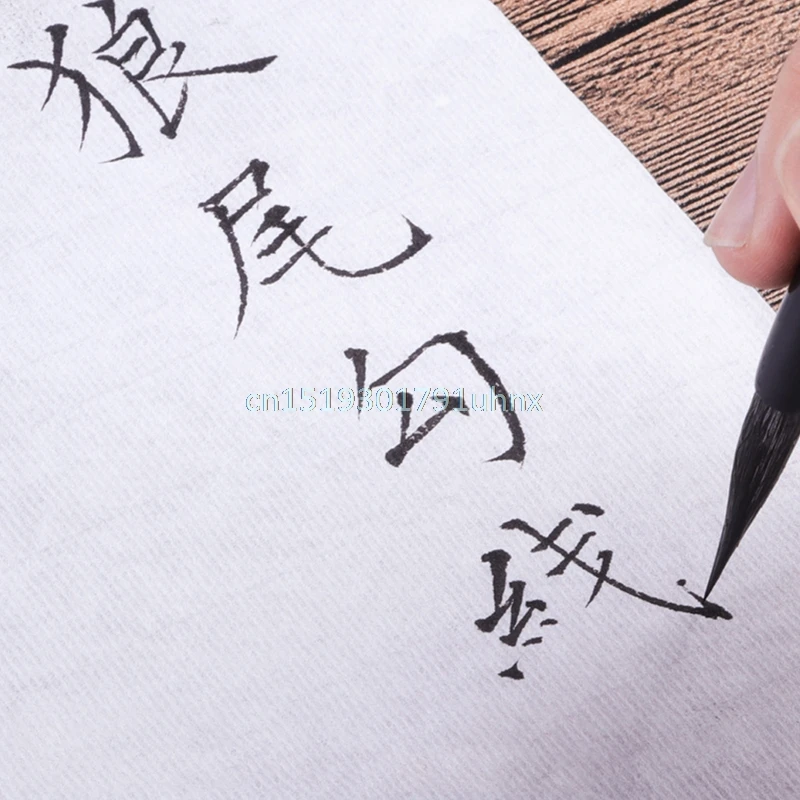 狼尾勾线
cn1519301791uhnx